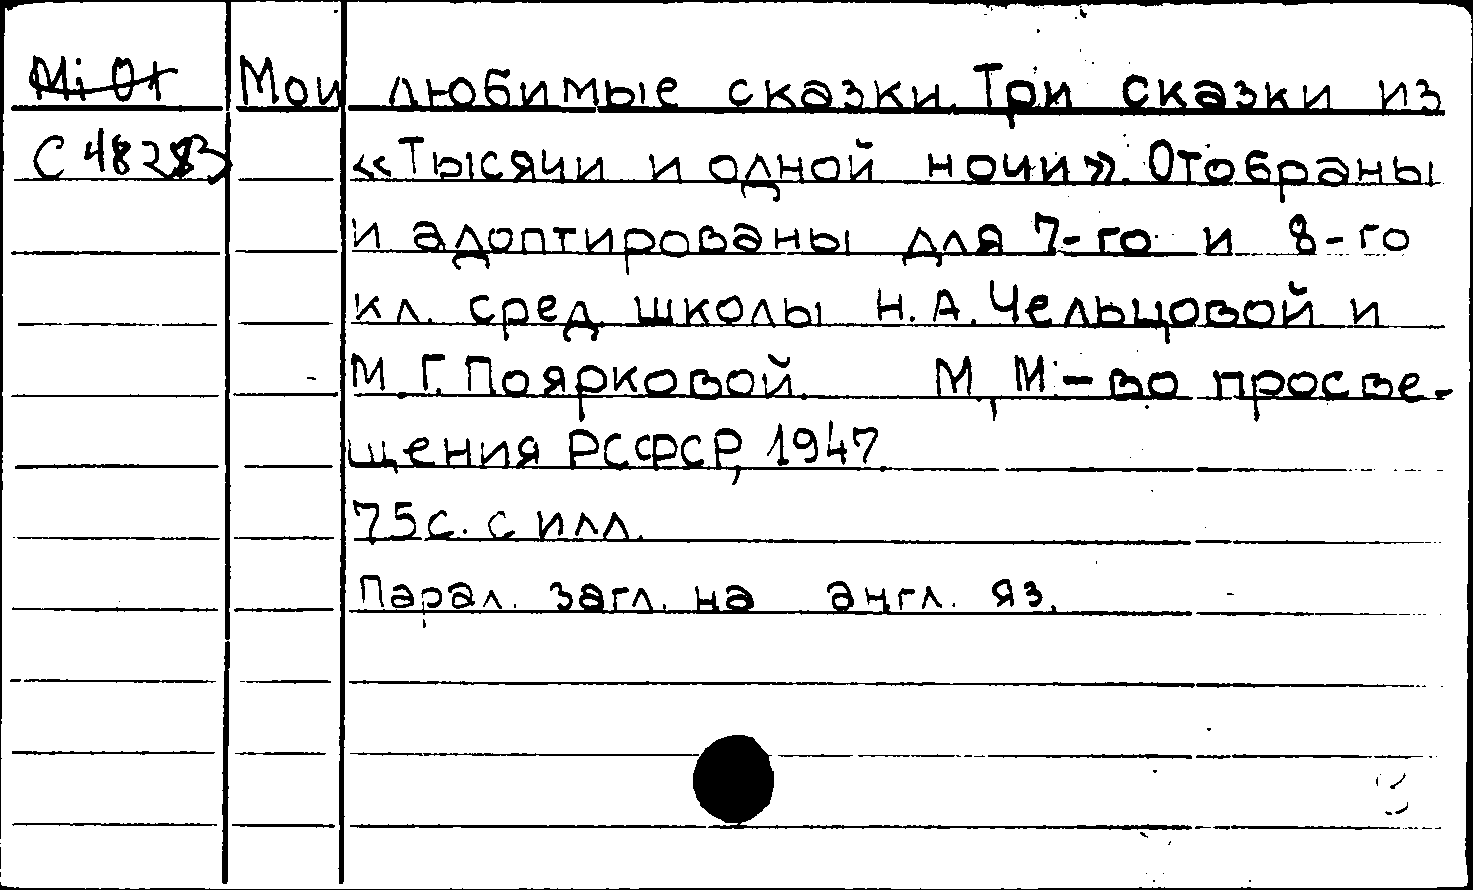 Mi 01 Мои любимые сказки. Три сказки из
«Тысячи и одной ночи». Отобраны
и адоптированы для 7-го и 8-го
кл. сред. школы Н.А. Чельцовой и
М.Г. Поярковой. М., М-во просве-
щения РСФСР, 1947.
75с. с илл.
Парал. загл. на англ. яз.